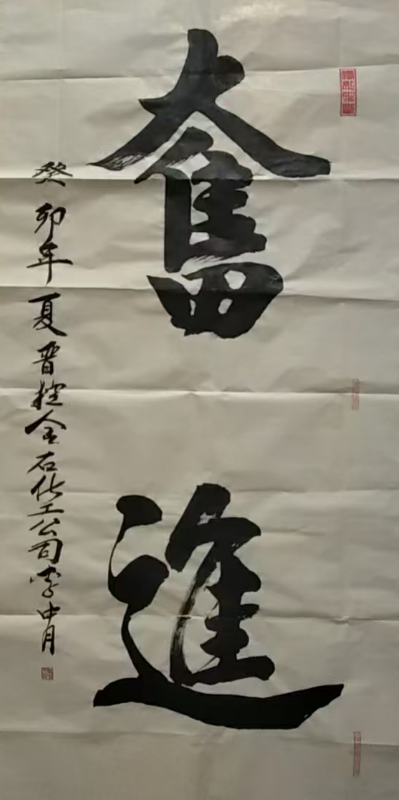 奮
進
癸卯年夏晋控金石化工公司李中月